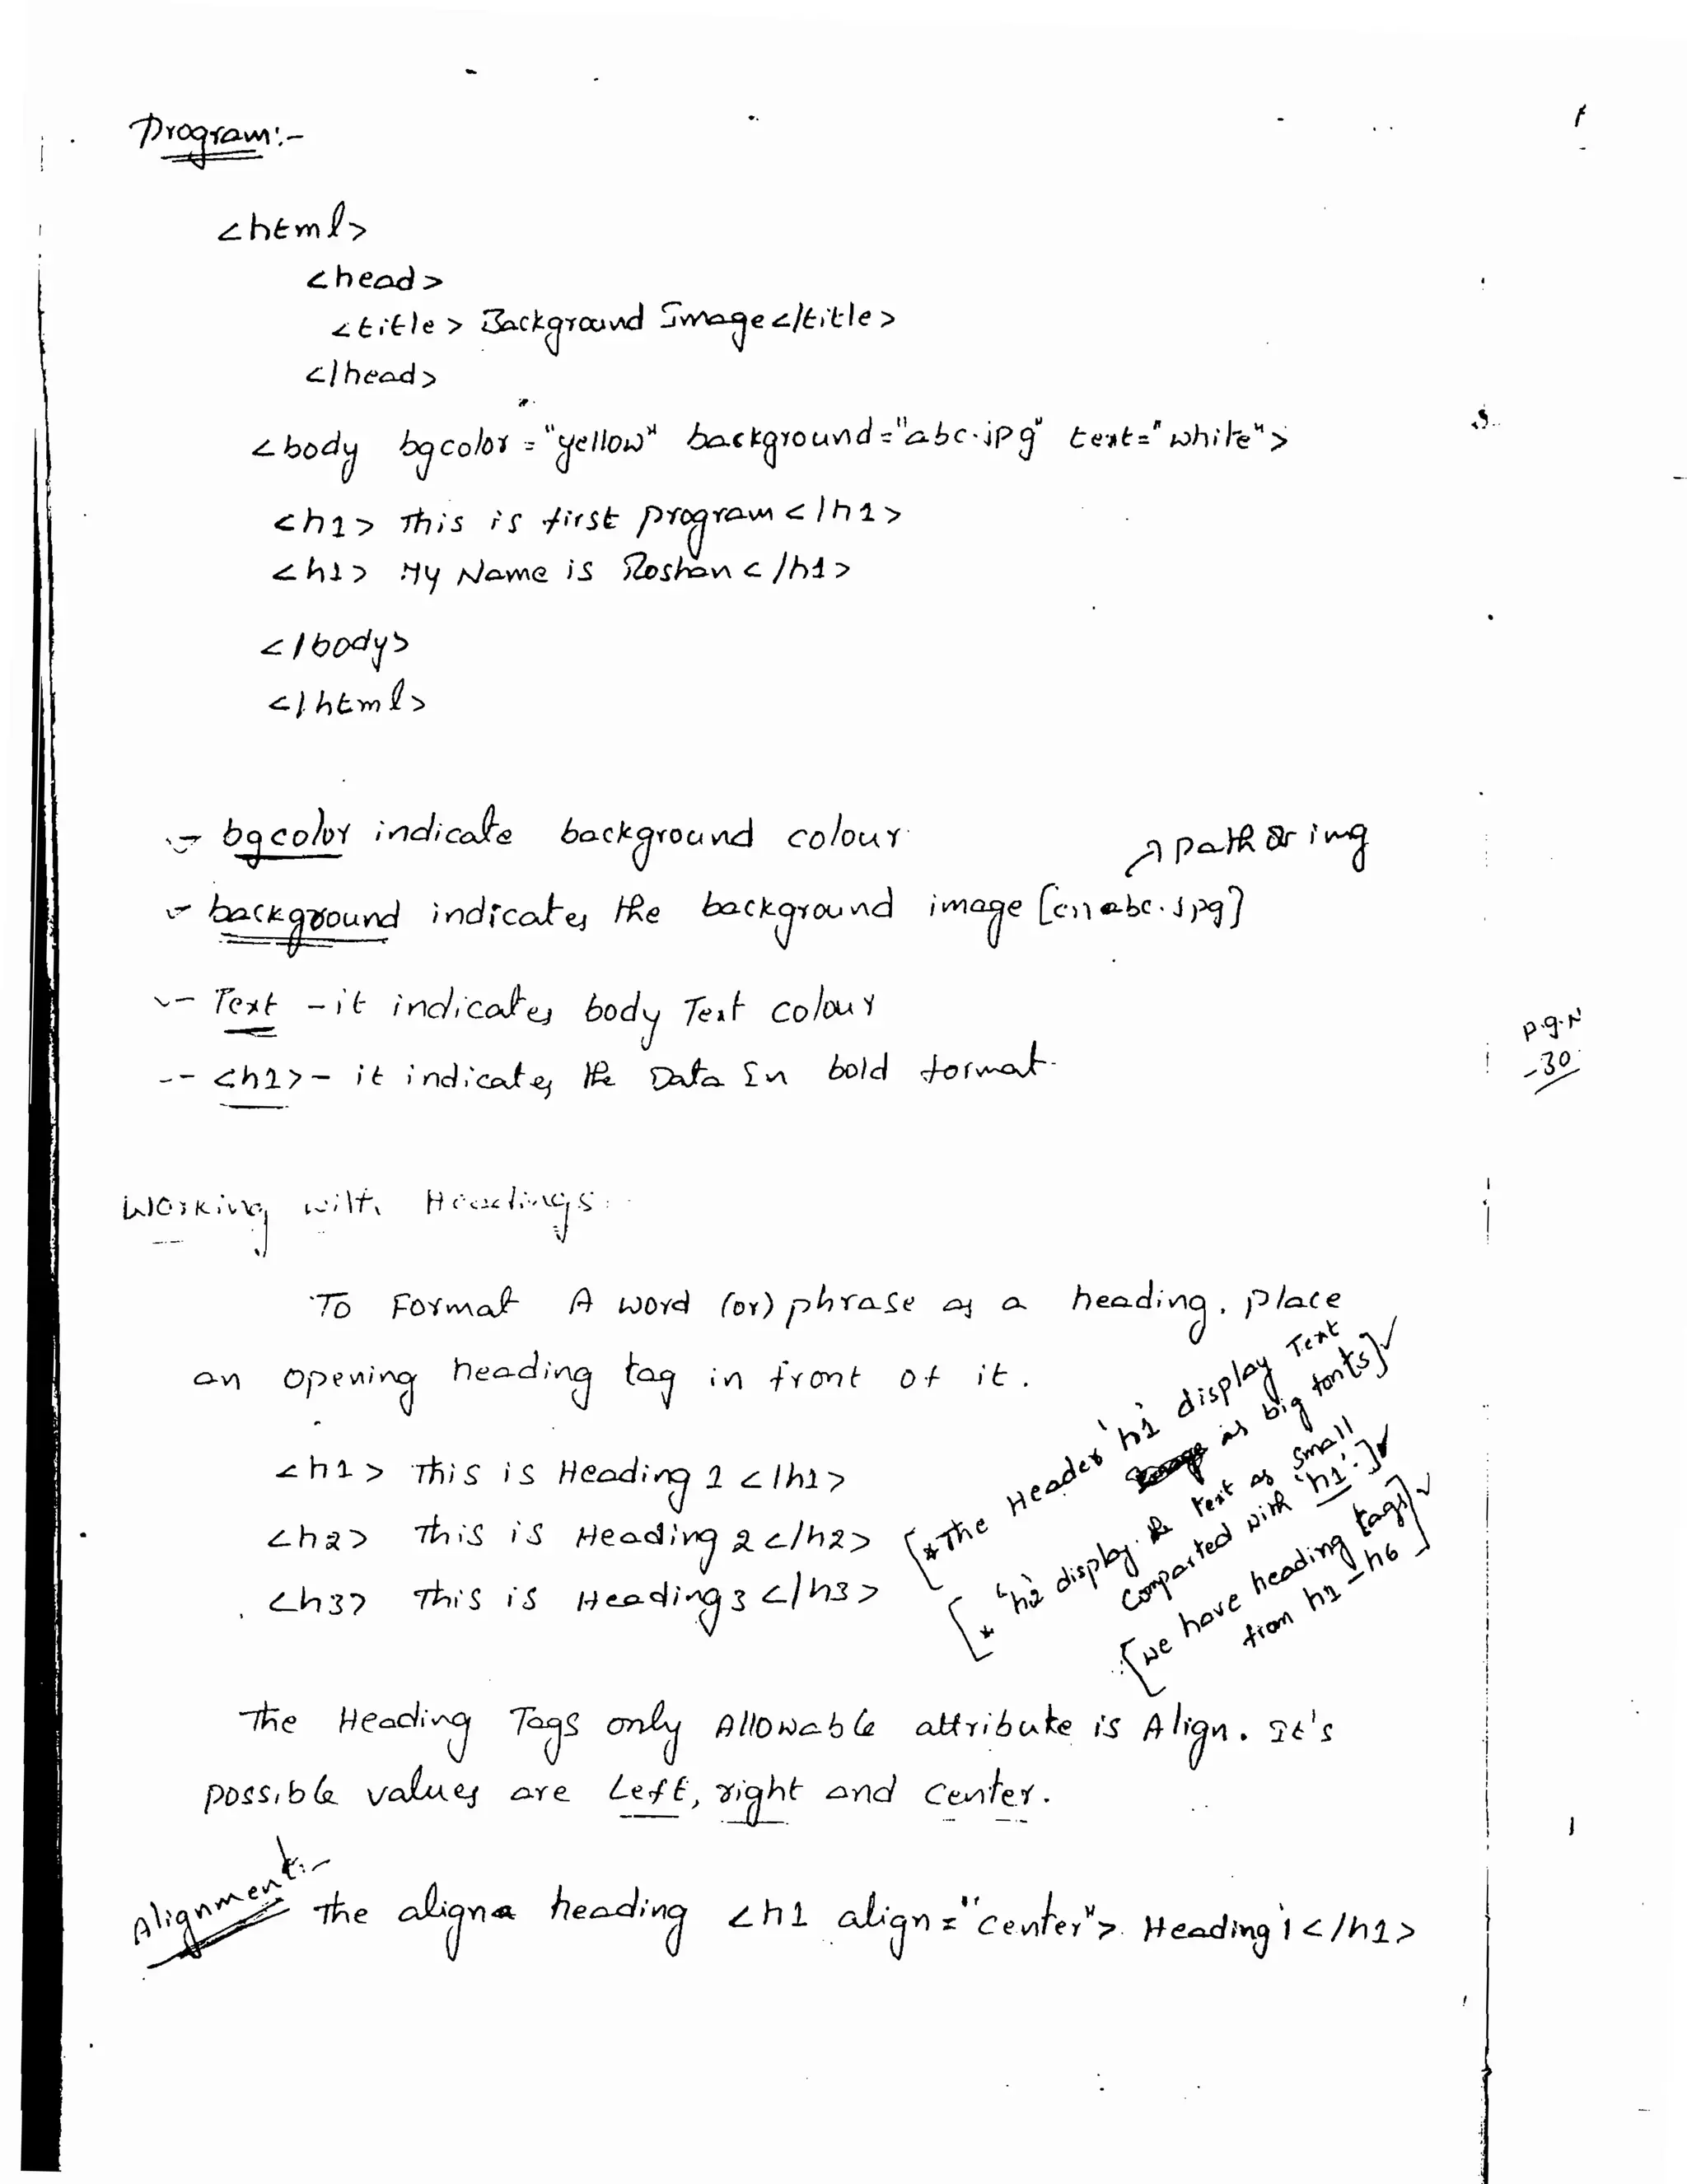 Program:-
<html>
<head>
<title> Background Image</title>
</head>
<body bgcolor = "yellow" background="abc.jpg" text="white">
<h1> This is first program </h1>
<h1> My Name is Roshan </h1>
</body>
</html>
bgcolor indicate background colour
path or img
background indicates the background image [c:\\abc.jpg]
Text - it indicates body Text colour
p.g.N
-30
-- <h1> - it indicates the Data In bold format.
Working with Headings:
To Format A word (or) phrase as a heading, place
an opening heading tag in front of it.
<h1> This is Heading 1 </h1>
<h2> This is Heading 2 </h2>
<h3> This is Heading 3 </h3>
[* The Header 'h1' display Text
as big fonts]
[* 'h2' display the text as small
comparted with 'h1'.]
[we have heading tags]
from h1 - h6
The Heading Tags only Allowable attribute is Align. It's
possible values are Left, right and center.
Alignment:-
The align heading <h1 align="center"> Heading 1 </h1>